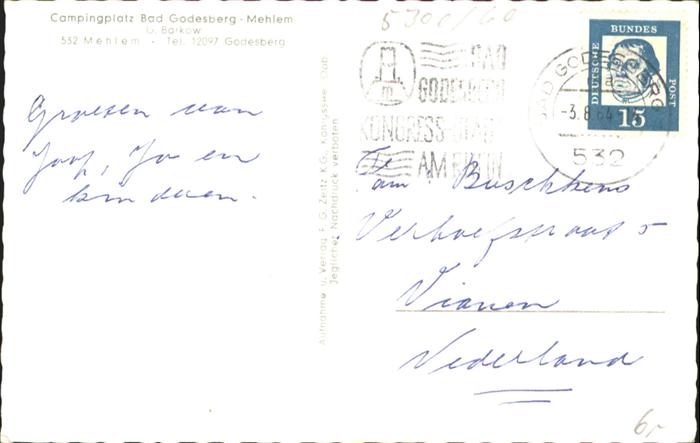 Campingplatz Bad Godesberg-Mehlem
G. Barkow
532 Mehlem - Tel. 12097 Godesberg
Groeten van
Joop, Jo en
kinderen.
Aufnahme u. Verlag F. G. Zeitz KG., Königssee/Obb.
Jeglicher Nachdruck verboten
BAD
GODESBERG
KONGRESS-STADT
AM RHEIN
BAD GODESBERG
-3.8.64
532
DEUTSCHE
BUNDES
POST
15
Fam Buschkens
Verhoefstraat 5
Vianen
Nederland
6,-